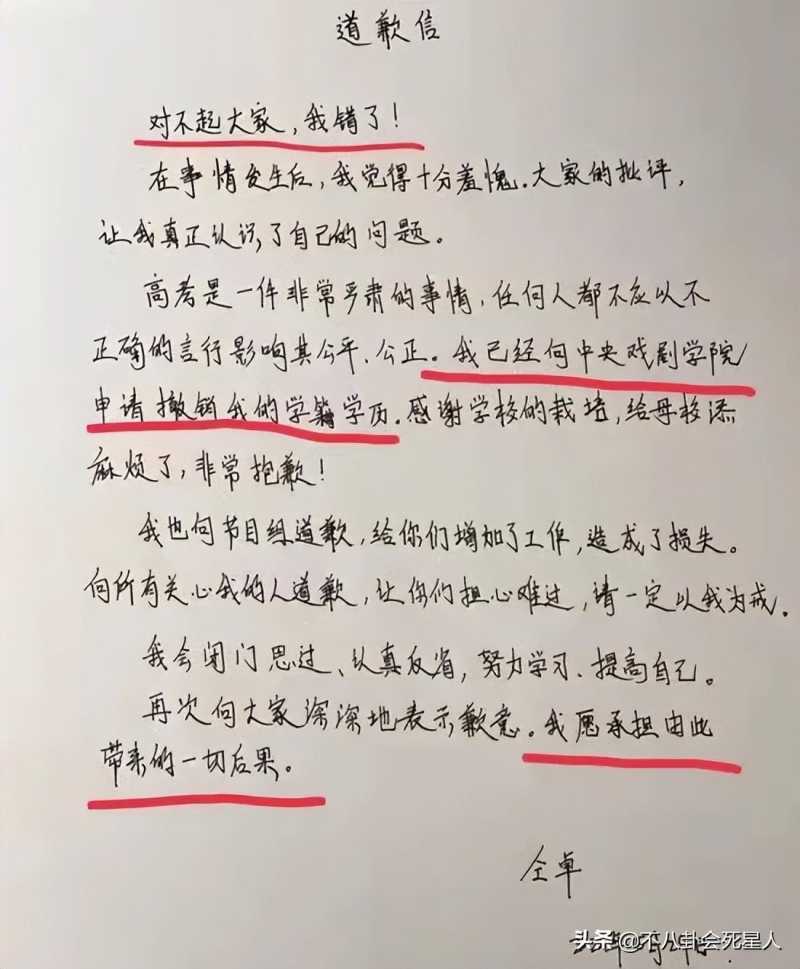 道歉信
对不起大家，我错了！
在事情发生后，我觉得十分羞愧。大家的批评，
让我真正认识了自己的问题。
高考是一件非常严肃的事情，任何人都不应以不
正确的言行影响其公平、公正。我已经向中央戏剧学院
申请撤销我的学籍学历。感谢学校的栽培，给母校添
麻烦了，非常抱歉！
我也向节目组道歉，给你们增加了工作，造成了损失。
向所有关心我的人道歉，让你们担心难过，请一定以我为戒。
我会闭门思过、认真反省，努力学习、提高自己。
再次向大家深深地表示歉意。我愿承担由此
带来的一切后果。
仝卓
头条@不八卦会死星人